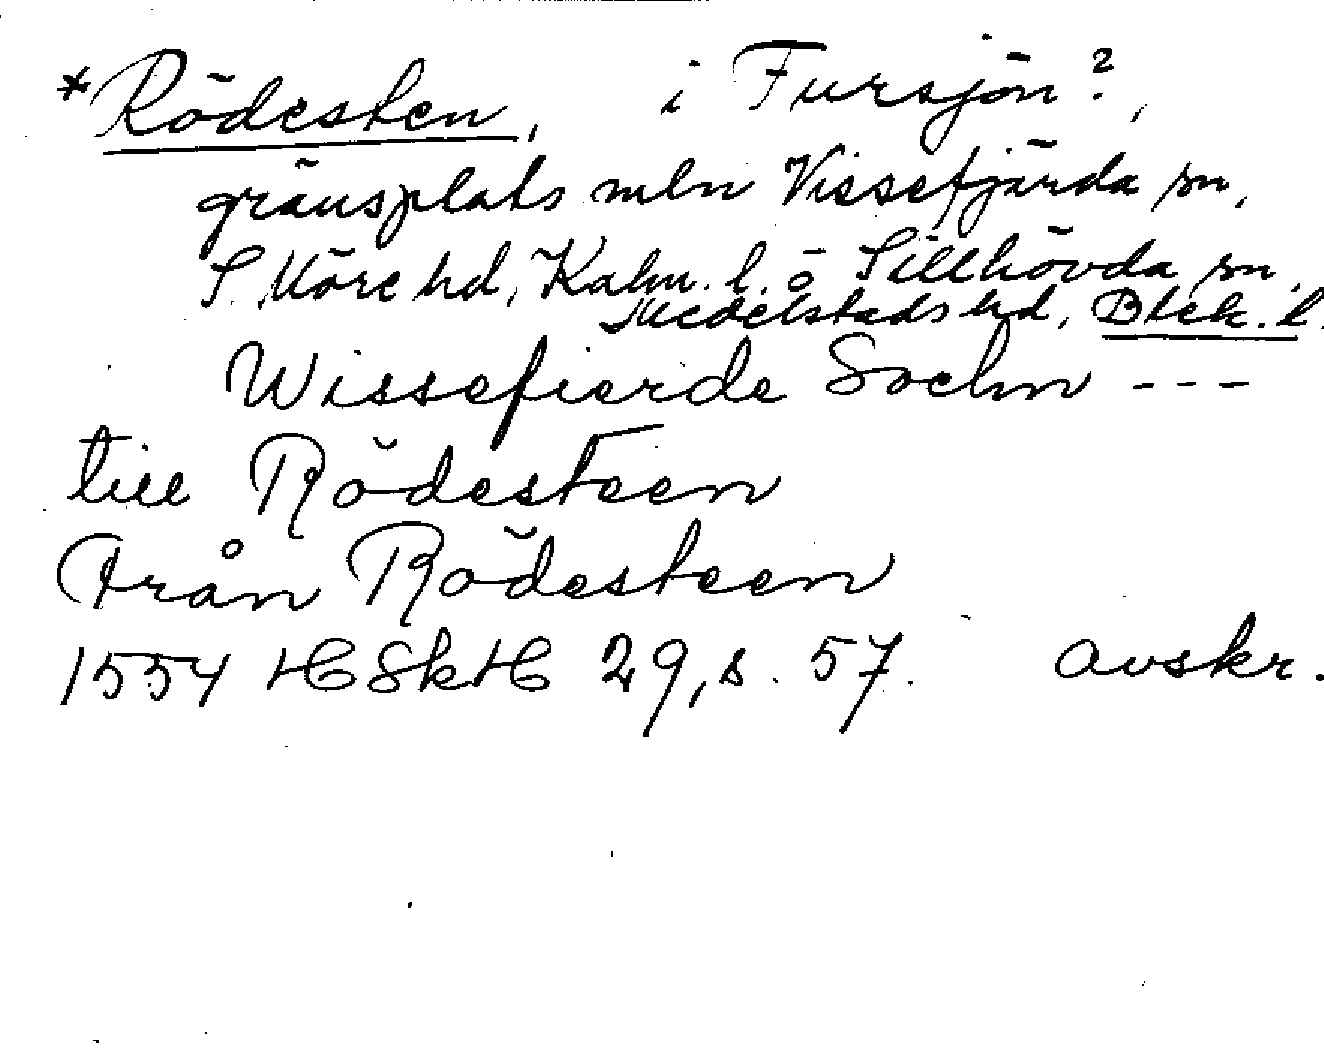 *Rödesten, i Fursjön?,
gränsplats mln Vissefjärda sn,
S. Möre hd, Kalm. l. o Sillhövda sn,
Medelstads hd, Blek. l.
Wissefierde Sochn ---
till Rödesteen
Från Rödesteen
1554 HSkH 29, s. 57. avskr.